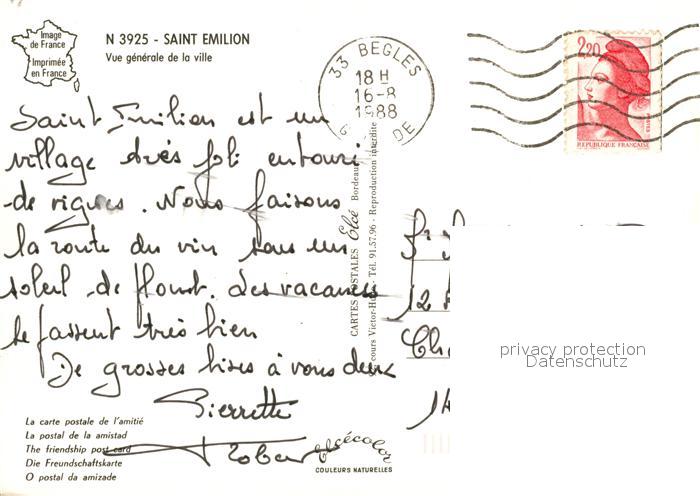 Image
de France
Imprimée
en France
N 3925 - SAINT EMILION
Vue générale de la ville
33 BEGLES
18 H
16-8
1988
DE
2,20
REPUBLIQUE FRANÇAISE
Saint Emilion est un
village très joli entouré
de vignes. Nous faisons
la route du vin sous un
soleil de plomb. Les vacances
se passent très bien
De grosses bises à vous deux
Pierrette
Robert
CARTES POSTALES Elcé Bordeaux
cours Victor-Hugo Tél. 91.57.96 - Reproduction interdite
12
Che
privacy protection
Datenschutz
La carte postale de l'amitié
La postal de la amistad
The friendship post card
Die Freundschaftskarte
O postal da amizade
COULEURS NATURELLES